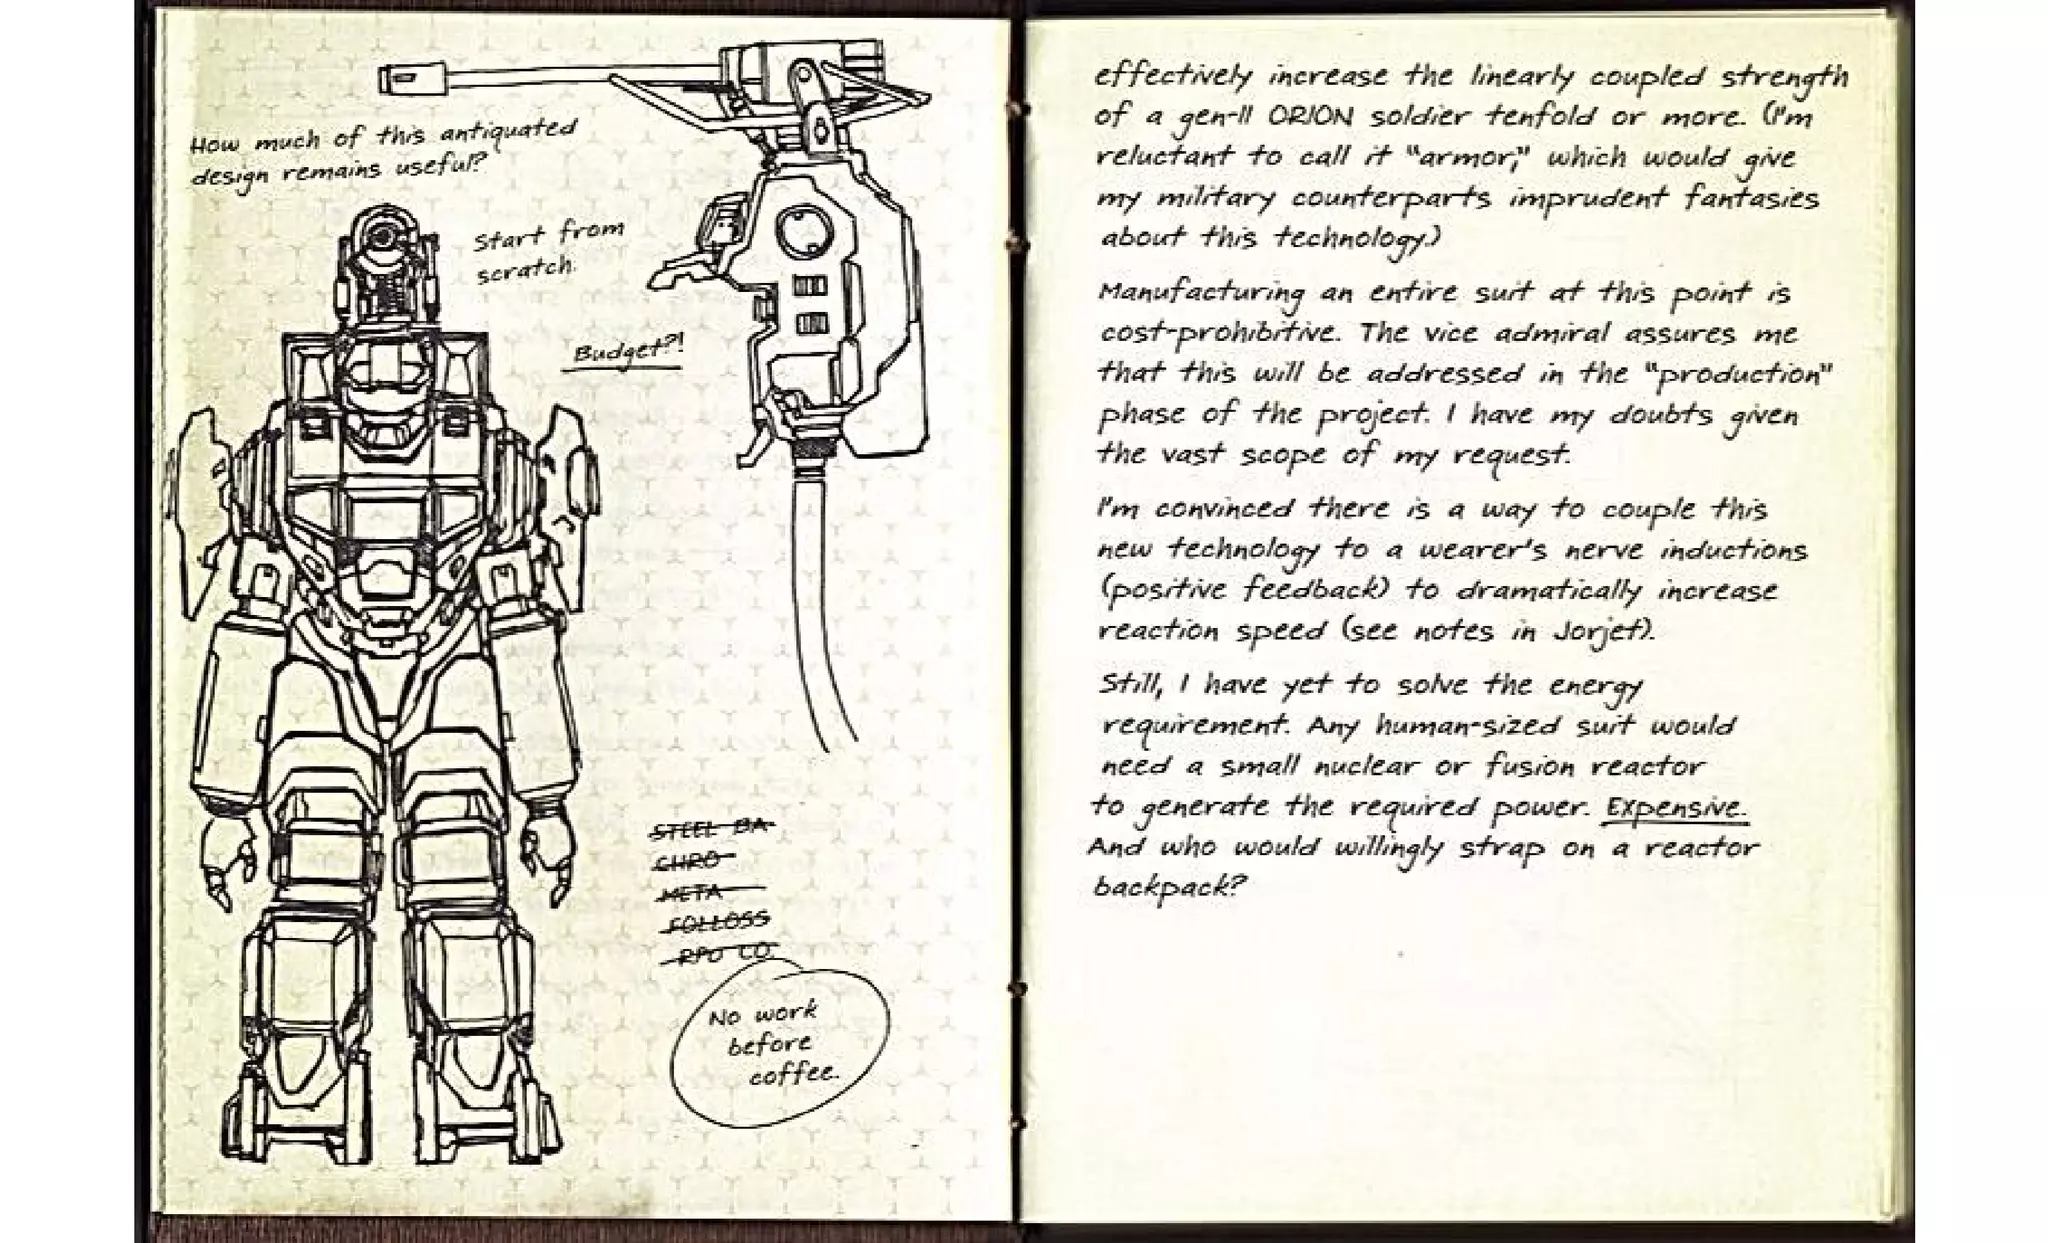 How much of this antiquated
design remains useful?
Start from
scratch.
Budget?!
STEEL BA
CHRO
META
FOLLOSS
RPD CO.
No work
before
coffee.
effectively increase the linearly coupled strength
of a gen-II ORION soldier tenfold or more. (I'm
reluctant to call it "armor," which would give
my military counterparts imprudent fantasies
about this technology.)
Manufacturing an entire suit at this point is
cost-prohibitive. The vice admiral assures me
that this will be addressed in the "production"
phase of the project. I have my doubts given
the vast scope of my request.
I'm convinced there is a way to couple this
new technology to a wearer's nerve inductions
(positive feedback) to dramatically increase
reaction speed (see notes in Jorjet).
Still, I have yet to solve the energy
requirement. Any human-sized suit would
need a small nuclear or fusion reactor
to generate the required power. Expensive.
And who would willingly strap on a reactor
backpack?